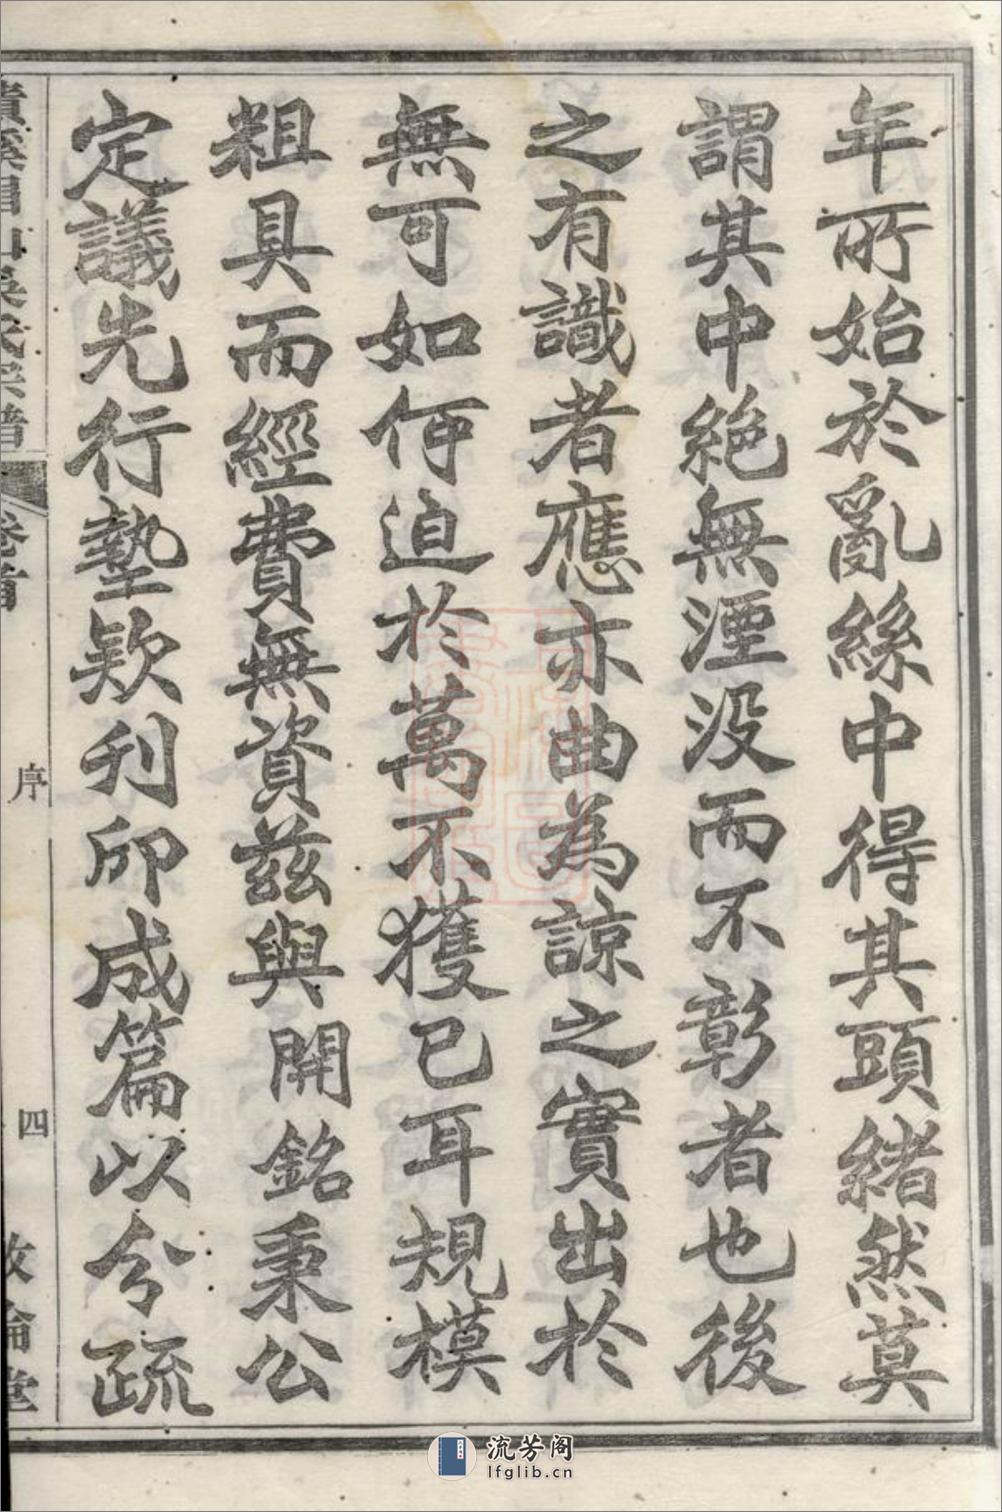 年所始於亂絲中得其頭緒然莫
謂其中絕無湮没而不彰者也後
之有識者應亦曲為諒之實出於
無可如何迫於萬不獲已耳規模
粗具而經費無資茲與開銘秉公
定議先行墊欵刋印成篇以分疏
卷首
序
四
流芳阁
lfglib.cn